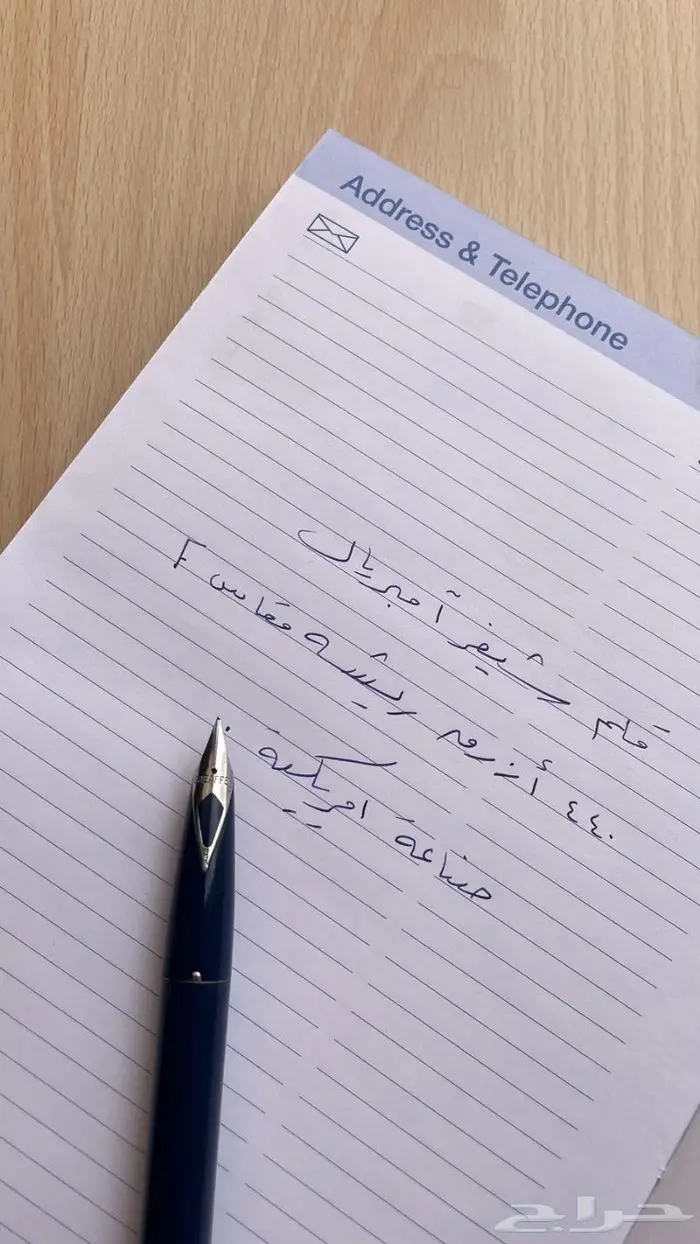 Address & Telephone
قلم شيفر آمبريال
٤٤٠ أزرق ريشه مقاس F
صناعة امريكية .
SHEAFFER
حراج